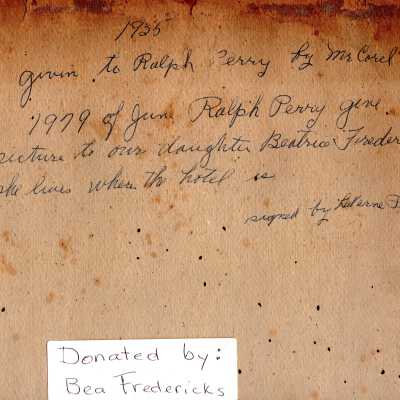 1935
givin to Ralph Perry by Mr Corel
1979 of June Ralph Perry give
picture to our daughter Beatrice Freder
she lives where the hotel is
signed by
Donated by:
Bea Fredericks